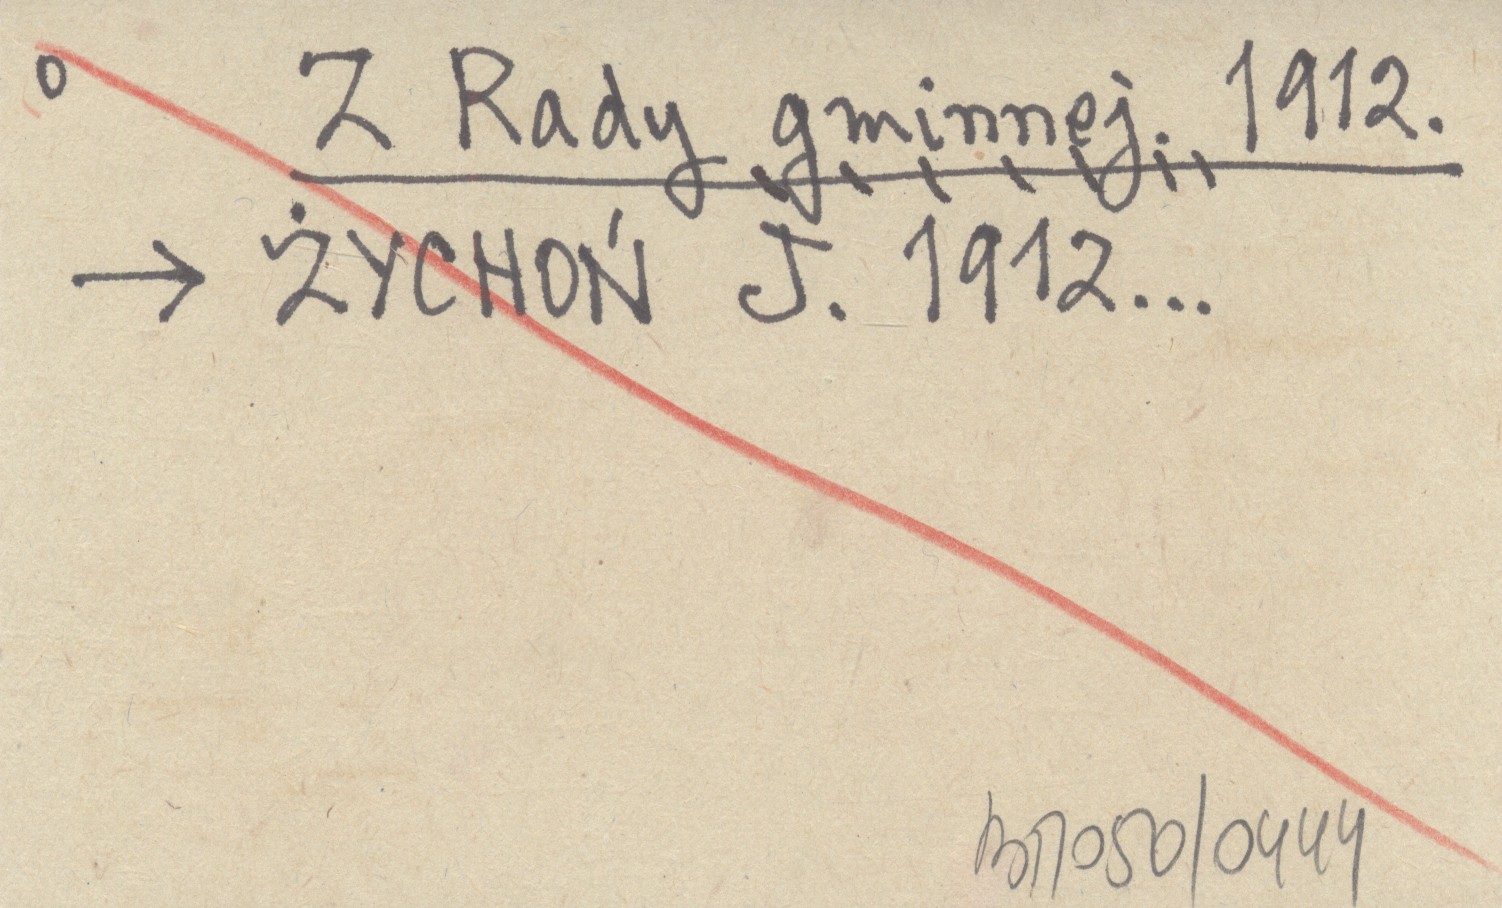 o Z Rady gminnej. 1912.
→ ŻYCHOŃ J. 1912...
050/0444